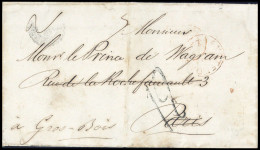 Monsieur
Monsr le Prince de Wagram
Rue de la Rochefoucault 3
Paris
à Gros-Bois